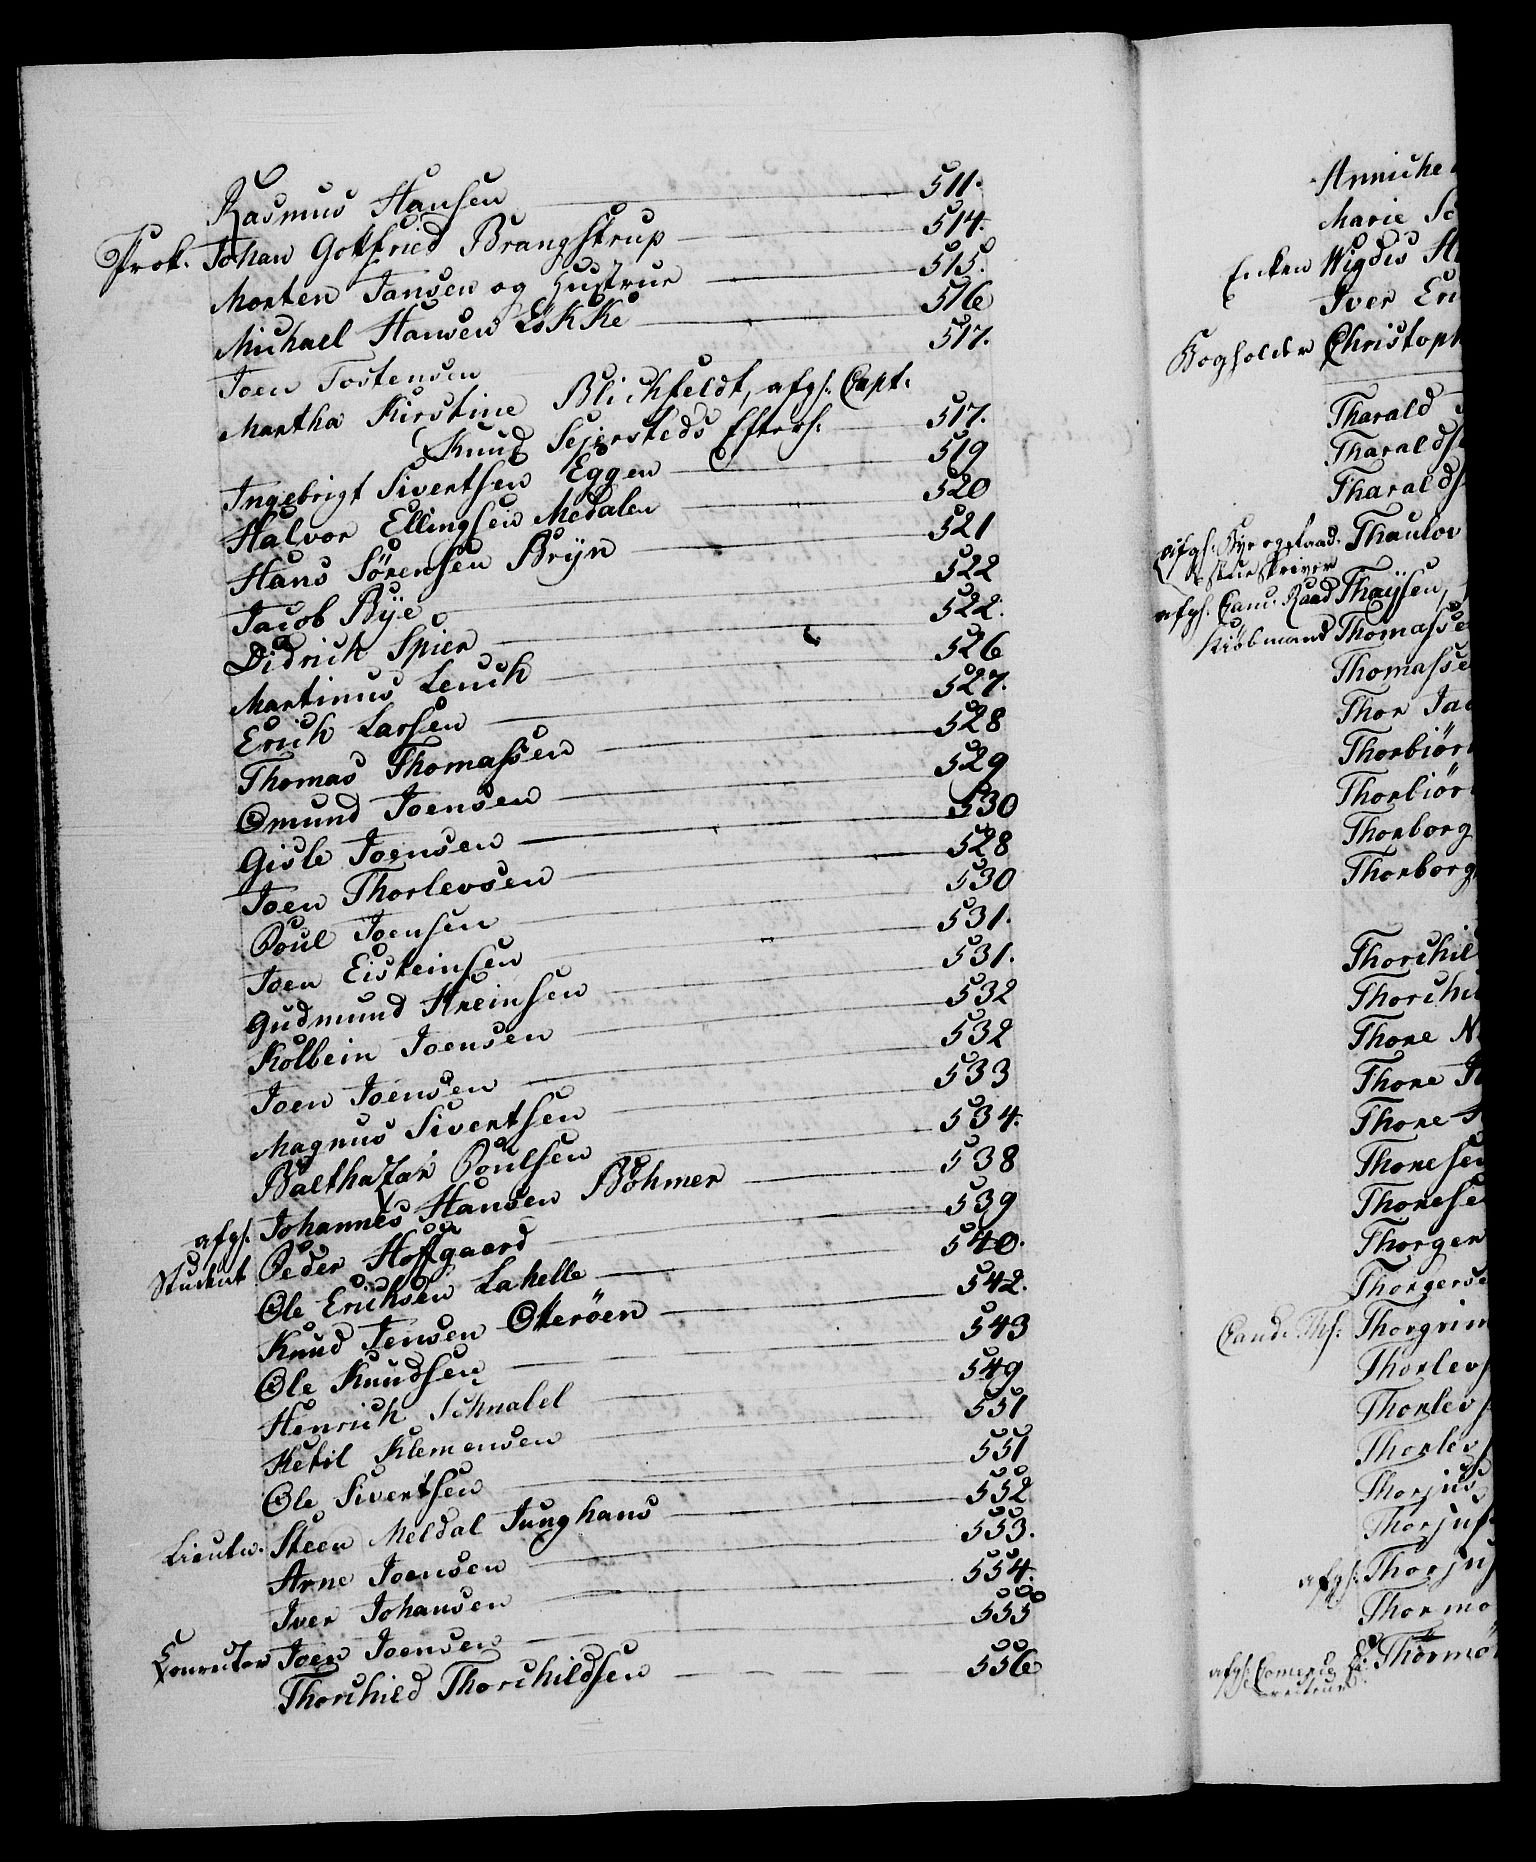 Rasmus Hansen 511.
Prok. Johan Gotfried Brangstrup 514.
Morten Jansen og Hustrue 515.
Michael Hansen Løkke 516
Joen Tostensen 517.
Martha Kirstine Blichfeldt, afgs. Capt:
Knud Sejersteds Efterl: 517.
Ingebrigt Sivertsen Eggen 519
Halvor Ellingsen Medalen 520
Hans Sörensen Bryn 521
Jacob Bÿe 522
Didrich Spier 522.
Martinus Lenck 526
Erich Larsen 527.
Thomas Thomassen 528
Omund Joensen 529
Gisle Joensen 530
Joen Thorlevsen 528
Poul Joensen 530
Joen Eisteinsen 531.
Gudmund Kreinsen 531.
Kolbein Joensen 532
Joen Joensen 532
Magnus Sivertsen 533
Balthazar Poulsen 534.
afgs. Johannes Hansen Böhmer 538
Student Peder Hoffgaard 539
Ole Erichsen Lahelle 540.
Knud Jensen Otteröen 542.
Ole Knudsen 543
Henrich Schnabel 549
Ketil Klemensen 551
Ole Sivertsen 551
Lieutn. Steen Meldal Junghans 552
Arne Joensen 553.
Iver Johansen 554.
Conrector Joen Joensen 555
Thorchild Thorchildsen 556
Anniche
Marie
Enken Wigdis
Iver
Bogholder Christoph
Tharald
Tharalds
Tharalds
afgs: Bye og Raad- Thaulov
stue skriver
afgs. Canc. Raad Thaysen,
Kiöbmand Thomasse
Thomasse
Thor Jac
Thorbiör
Thorbiör
Thorborg
Thorborg
Thorchil
Thorchi
Thore N
Thore
Thore
Thoresen
Thorese
Thorger
Thorgerse
Cand. Ths: Thorgrim
Thorlevs
Thorlevs
Thorlevs
Thorjus
Thorjus
afgs: Thorjus
Thormo
afgs: Thormö